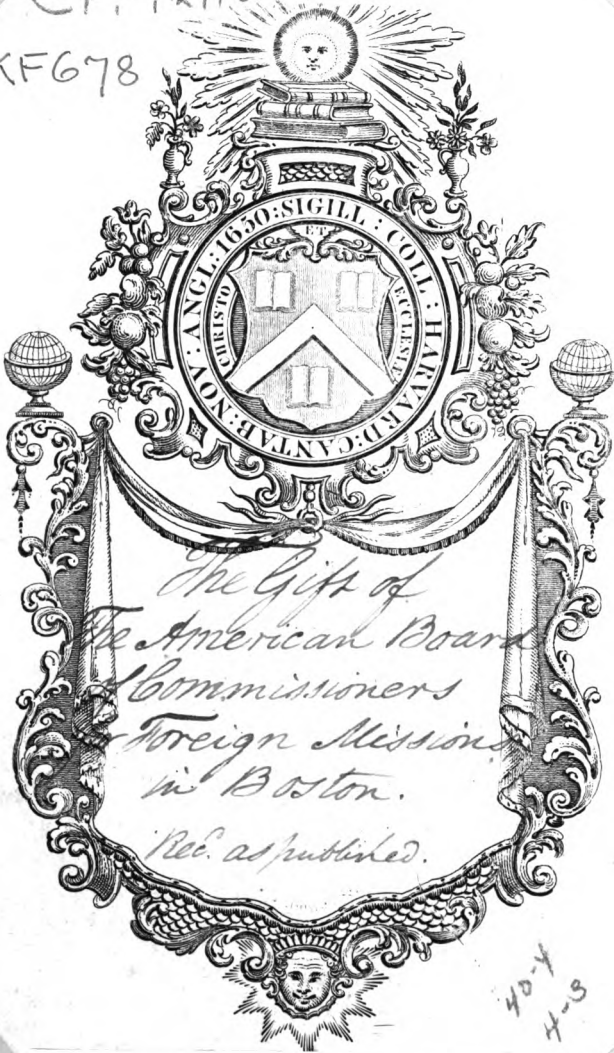 KF678
SIGILL : COLL : HARVARD : CANTAB : NOV : ANGL : 1650 :
CHRISTO ET ECCLESIÆ
The Gift of
The American Board
of Commissioners
for Foreign Missions
in Boston.
Rec. as published.
40-4
4-3